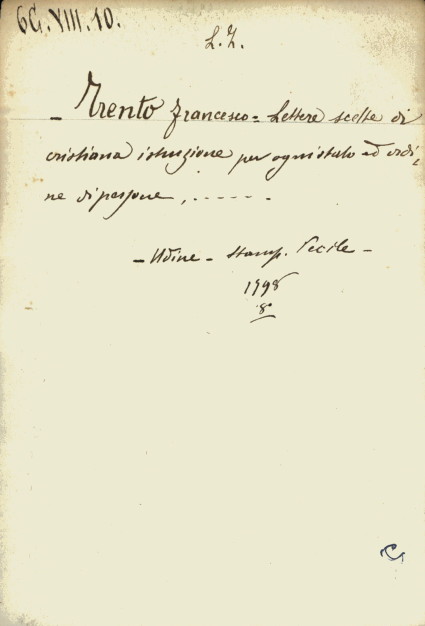 6G.VIII.10.
L.Z.
- Trento Francesco = Lettere scelte di
cristiana istruzione per ogni stato ed ordi,
ne di persone, ------
- Udine - Stamp. Pecile -
1798
8°
C